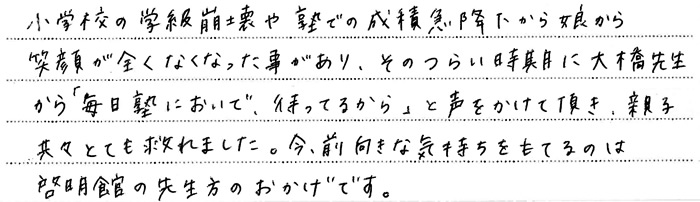 小学校の学級崩壊や塾での成績急降下から娘から
笑顔が全くなくなった事があり、そのつらい時期に大橋先生
から「毎日塾においで、待ってるから」と声をかけて頂き、親子
共々とても救われました。今、前向きな気持ちをもてるのは
啓明館の先生方のおかげです。